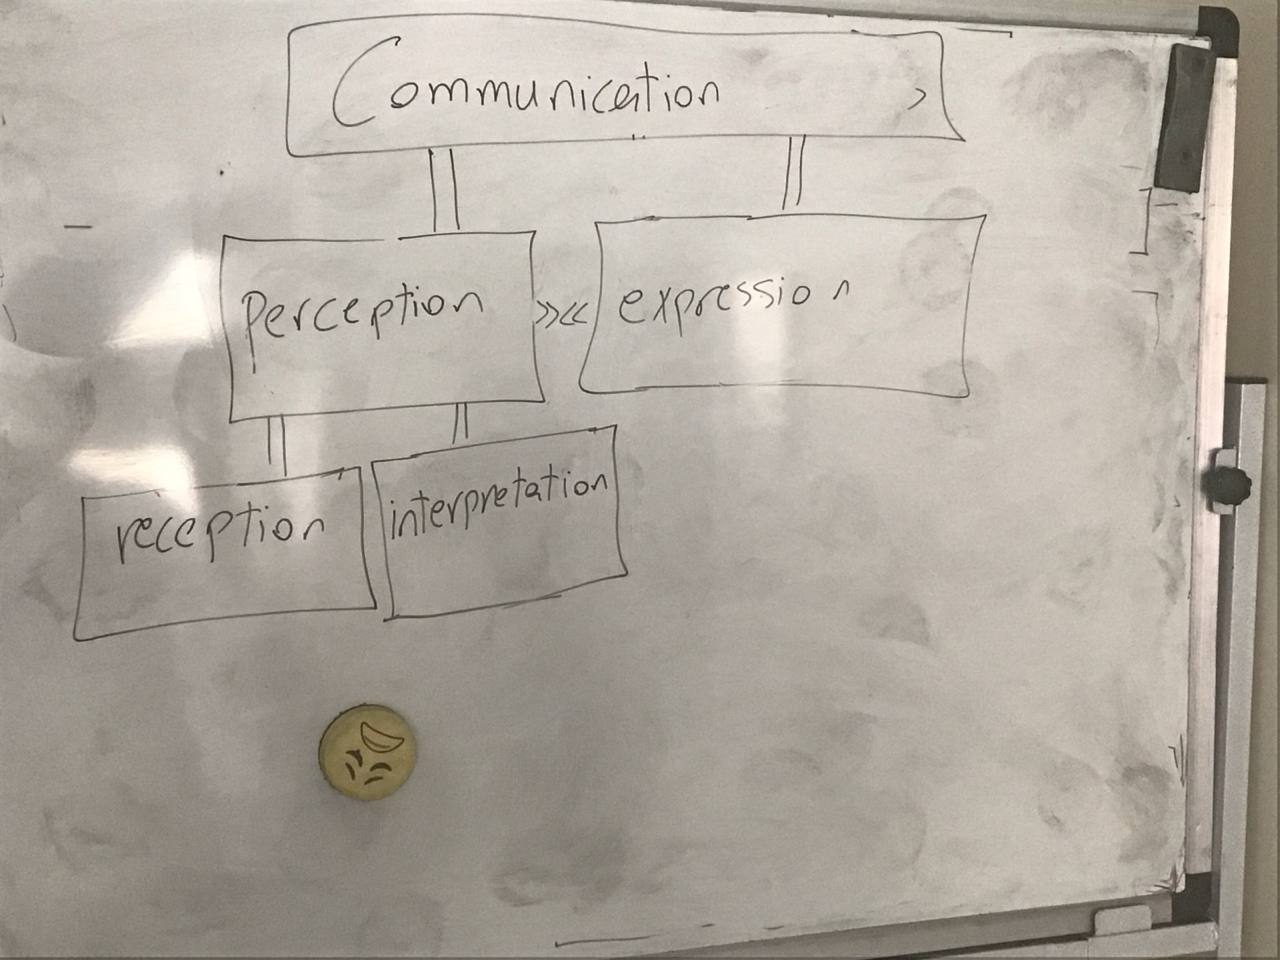 Communication >
Perception »« expression
reception
interpretation